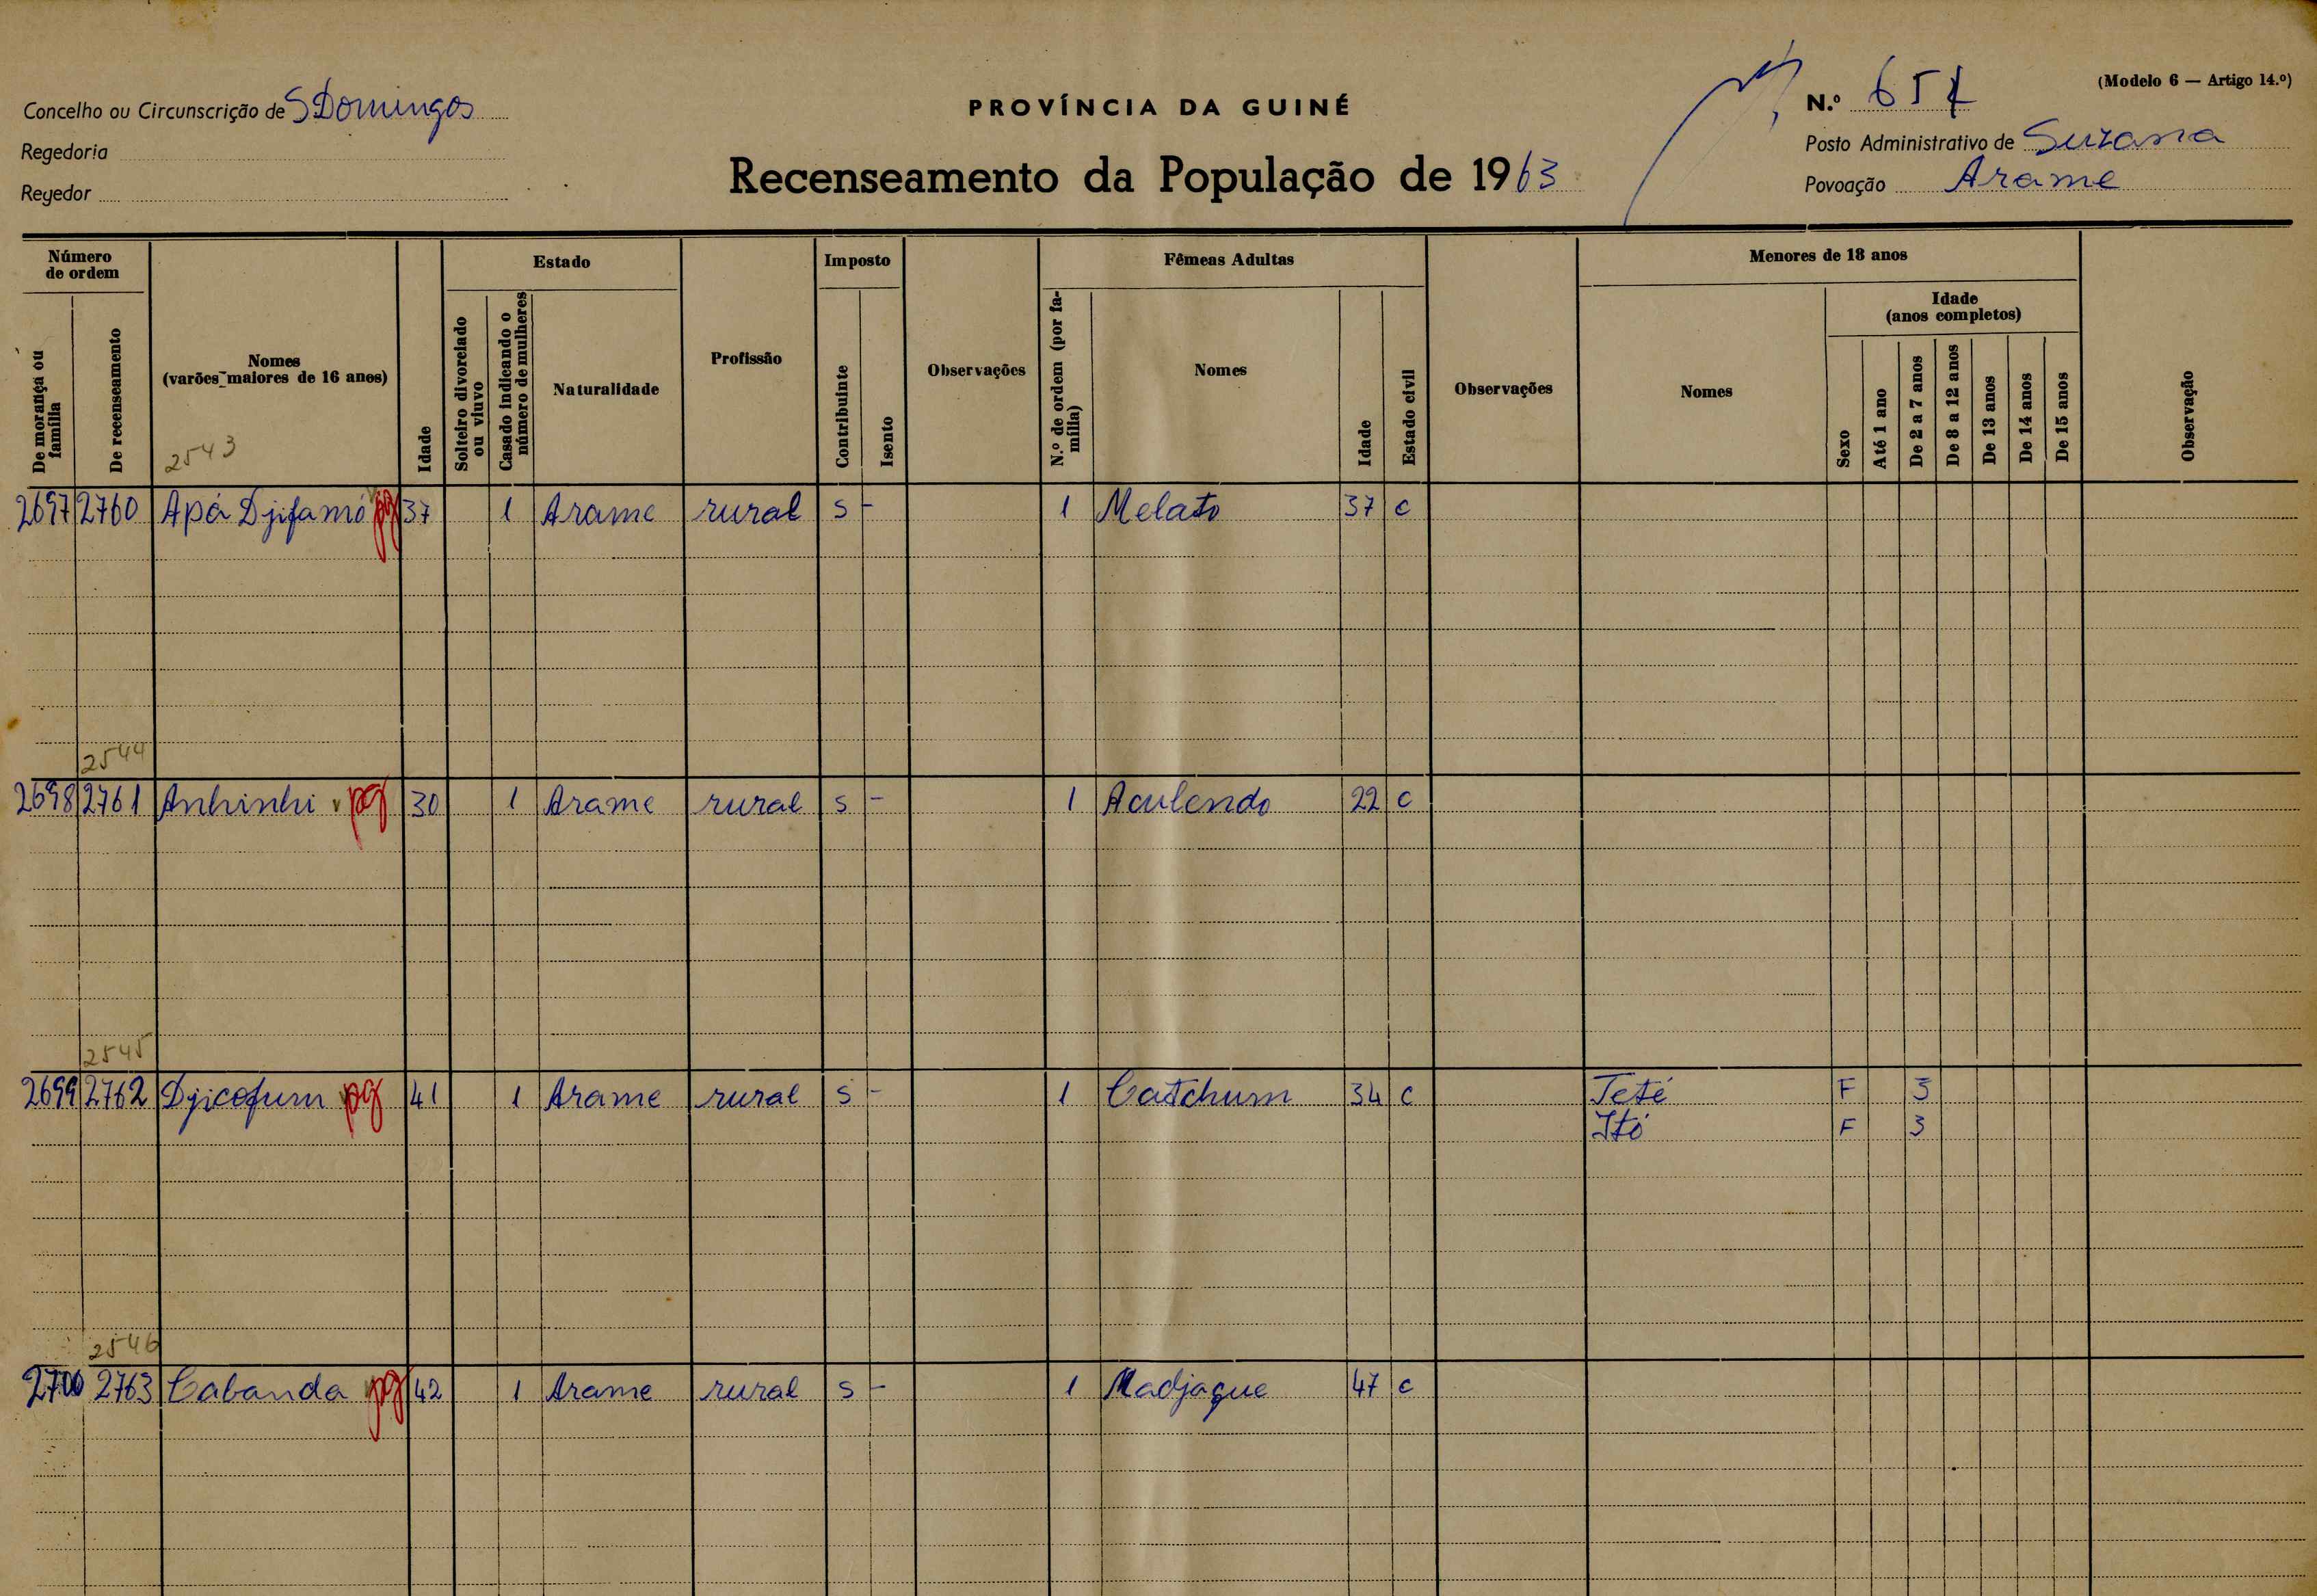 (Modelo 6 — Artigo 14.º)
Concelho ou Circunscrição de S Domingos
PROVÍNCIA DA GUINÉ
N.º 654
Regedoria
Posto Administrativo de Suzana
Regedor
Recenseamento da População de 1963
Povoação Arame
Número de ordem
Estado
Imposto
Fêmeas Adultas
Menores de 18 anos
De morança ou família
De recenseamento
Nomes
(varões maiores de 16 anos)
2543
Idade
Solteiro divorciado ou viuvo
Casado indicando o número de mulheres
Naturalidade
Profissão
Contribuinte
Isento
Observações
N.º de ordem (por família)
Nomes
Idade
Estado civil
Observações
Nomes
Sexo
Idade
(anos completos)
Até 1 ano
De 2 a 7 anos
De 8 a 12 anos
De 13 anos
De 14 anos
De 15 anos
Observação
2697 2760 Apá Djifamó pg 37 1 Arame rural s - 1 Melato 37 c
2544
2698 2761 Anhinhi v pg 30 1 Arame rural s - 1 Aculendo 22 c
2545
2699 2762 Djicofum pg 41 1 Arame rural s - 1 Catchum 34 c Teté F 5
Itó F 3
2546
2700 2763 Cabanda pg 42 1 Arame rural s - 1 Madjaque 47 c